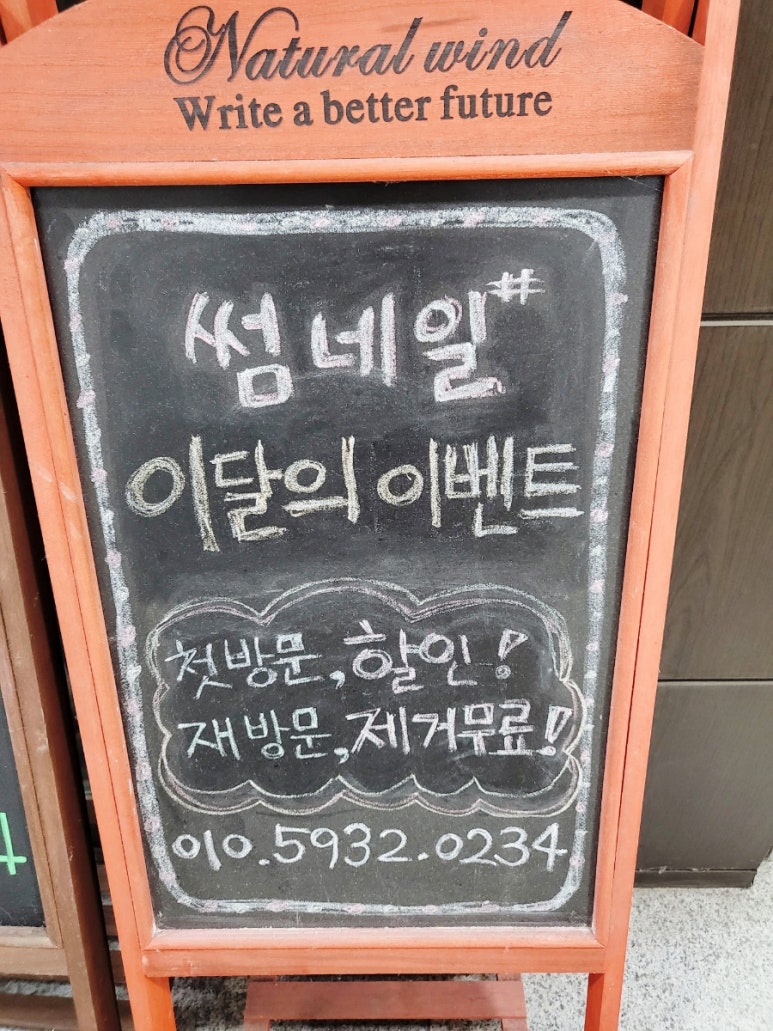 Natural wind
Write a better future
썸네일#
이달의 이벤트
첫방문, 할인!
재방문, 제거무료!
010.5932.0234